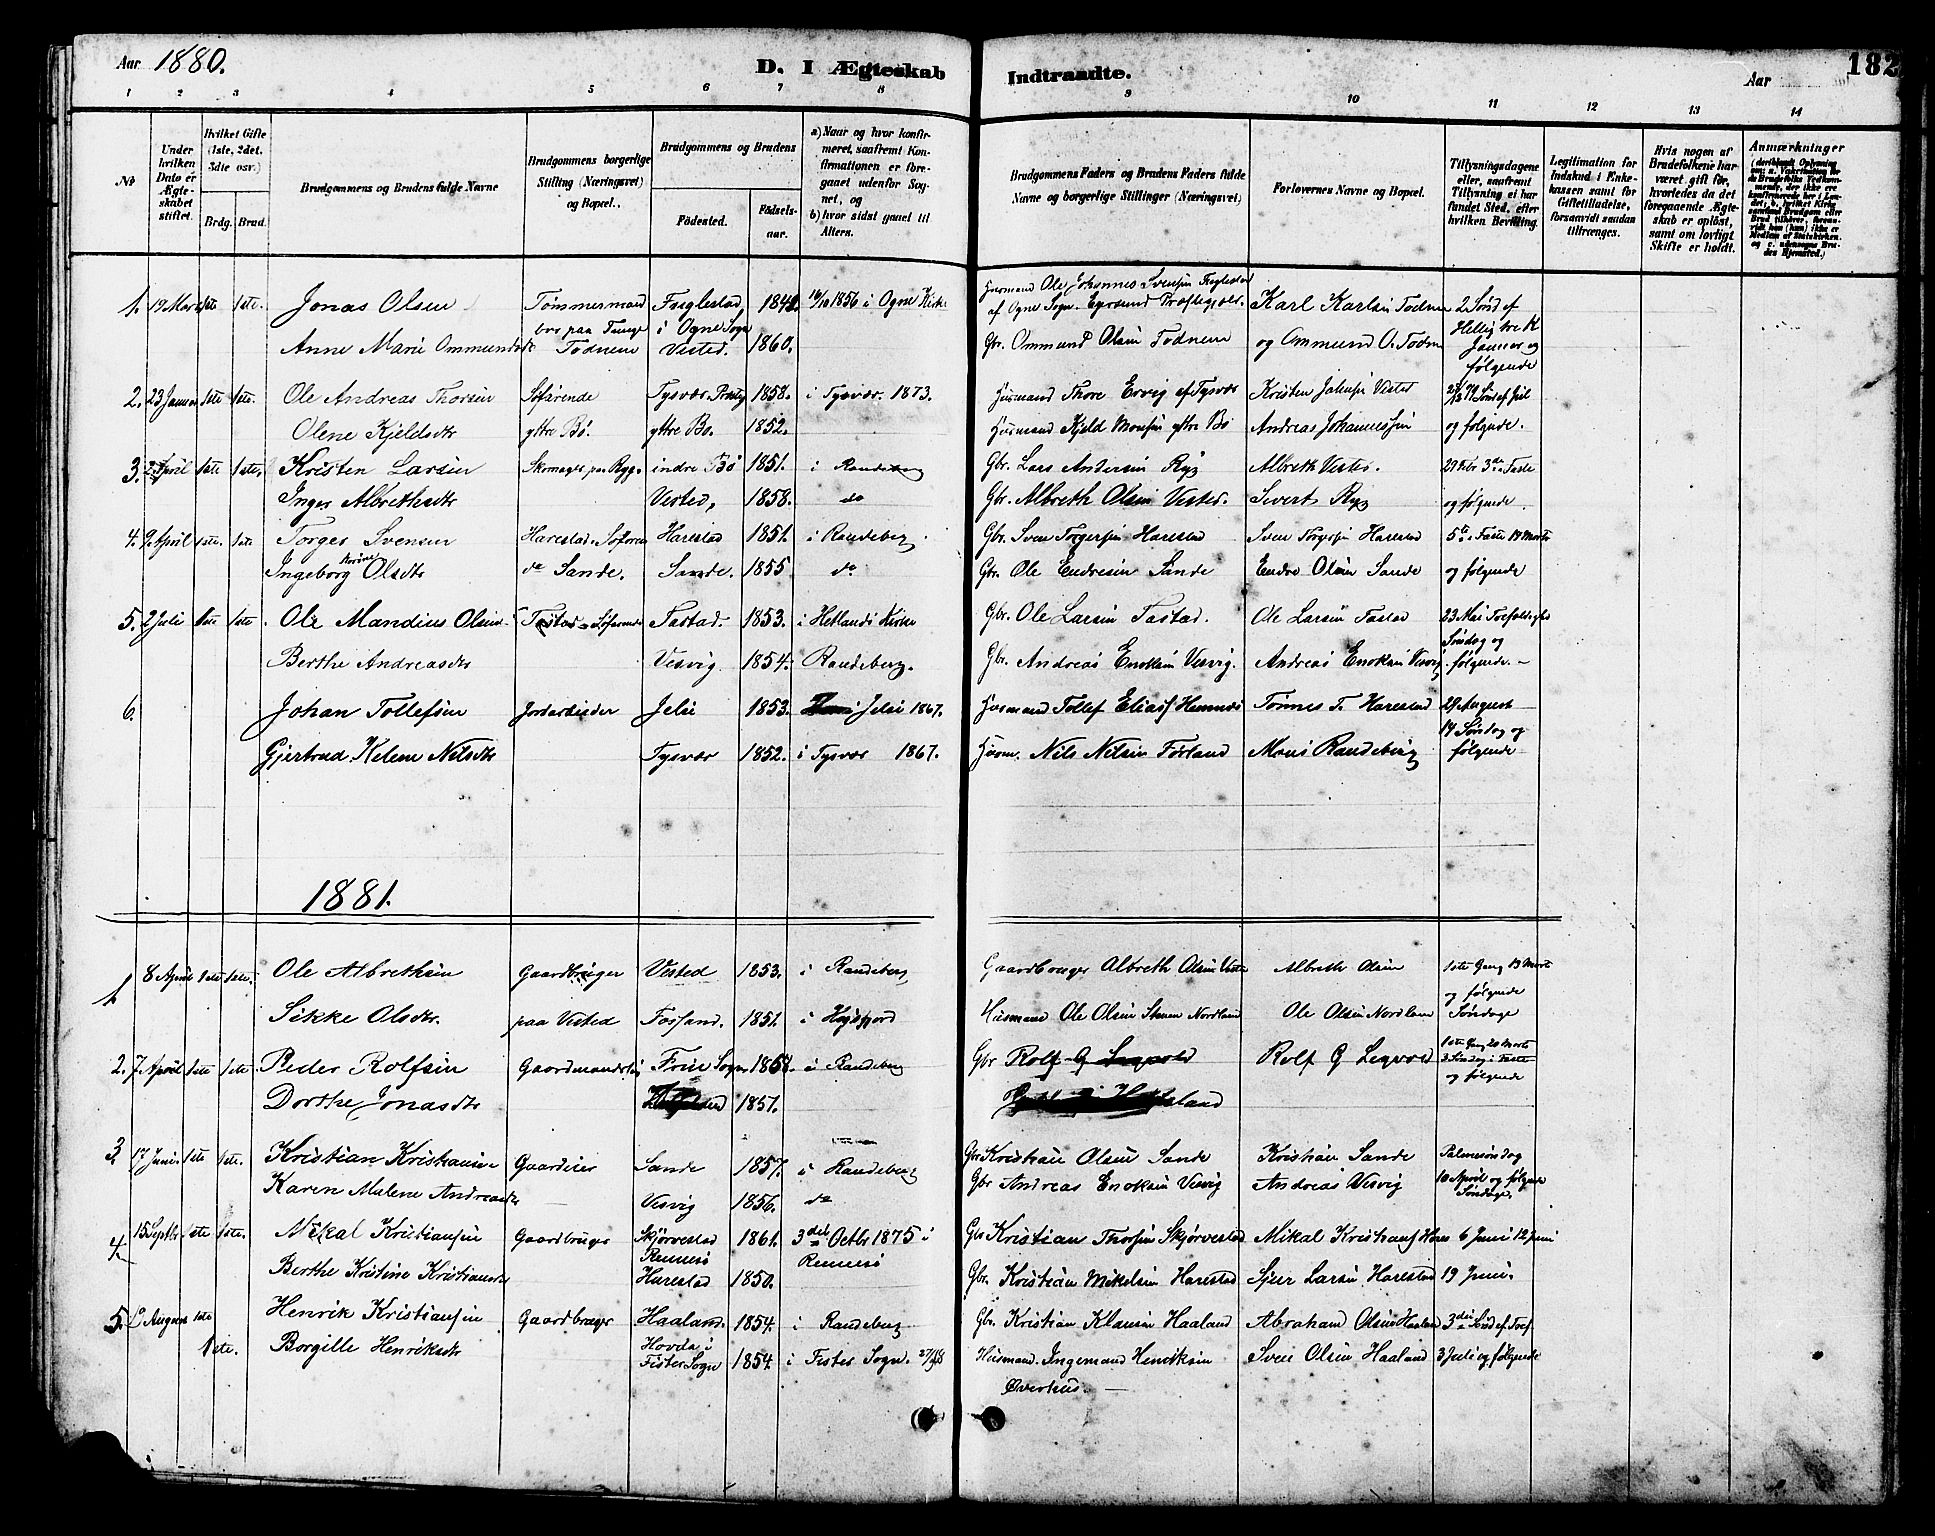 Aar 1880. D. I Ægteskab Indtraadte. Aar 182
1 2 3 4 5 6 7 8 9 10 11 12 13 14
Nr.
Under hvilken Dato er Ægteskabet stiftet.
Hvilket Gifte (1ste, 2det, 3die osv.) Brdg. Brud.
Brudgommens og Brudens fulde Navne
Brudgommens borgerlige Stilling (Næringsvei) og Bopæl.
Brudgommens og Brudens Fødested. Fødselsaar.
a) Naar og hvor konfirmeret, saafremt Konfirmationen er foregaaet udenfor Sognet, og b) hvor sidst gaaet til Alters.
Brudgommens Faders og Brudens Faders fulde Navne og borgerlige Stillinger (Næringsvei)
Forlovernes Navne og Bopæl.
Tillysningsdagene eller, saafremt Tillysning ei har fundet Sted, efter hvilken Bevilling.
Legitimation for Indskud i Enkekassen samt for Giftetilladelse, forsaavidt saadan tiltrænges.
Hvis nogen af Brudefolkene har været gift før, hvorledes da det foregaaende Ægteskab er opløst, samt om lovligt Skifte er holdt.
Anmærkninger
1. 19 Marts 1ste 1ste. Jonas Olsen Tømmermand Fuglestad 1842 16/10 1856 i Ogne Kirke Husmand Ole Johannes Svensen Fuglestad af Ogne Sogn. Egersund Præstegjæld. Karl Karlsen Todnem 2 Sønd. ef
Anne Marie Ommundsdt Todnem i Ogne Sogn Vested. 1860. Gbr. Ommund Olsen Todnem og Ommund O. Todnem Hellig tre K Januar og følgende
2. 23 Januar 1ste 1ste. Ole Andreas Thorsen Søfarende Tysvær Prstgj 1858. i Tysvær 1873. Husmand Thore Ervig af Tysvær Kristen Jakobsen Vested
Olene Kjeldsdtr yttre Bø. yttre Bø. 1852. Husmand Kjeld Monsen yttre Bø Andreas Johannessen og følgende.
3. 2 April 1ste 1ste. Kristen Larsen Skomager paa Ryg. indre Bø 1851. i Randeberg Gbr. Lars Andersen Ryg Albreth Vested. 29 Febr 3die Faste
Inger Albrethsdtr Vested, 1858. do Gbr. Albreth Olsen Vested. Sivert Ryg og følgende
4. 9 April 1ste. 1ste Torges Svensen Harestad. Søfaren Harestad 1851. i Randeberg. Gbr. Sven Torgersen Harestad Sven Torgersen Harestad 5te Faste 14 Marts
Ingeborg Olsdtr do Sande. Sande. 1855. do Gbr. Ole Endresen Sande Endre Olsen Sande og følgende
5. 2 Juli 1ste 1ste. Ole Mandius Olsen Tastad - Søfarende Tastad. 1853. i Hetlands Kirke Gbr. Ole Larsen Tastad. Ole Larsen Tastad 23 Mai Trefoldigheds
Berthe Andreasdtr Visvig 1854. Randeberg. Gbr. Andreas Enoksen Visvig. Andreas Enoksen Visvig Søndag og følgende. -
6. Johan Tollefsen Jordarbeider Jelse 1853. Jelse 1867. Husmand Tollef Elias Tønnes T. Harestad 29 August
Gjertrud Helene Nilsdtr Tysvær 1852. i Tysvær 1867. Husm. Nils Nilsen Førland Mons Randeberg 14 Søndag og følgende
1881.
1. 8 April 1ste 1ste. Ole Albrethsen Gaardbruger Vested 1853. i Randeberg Gaardbruger Albreth Olsen Vested Albreth Olsen 1ste Gang 13 Marts
Sikke Olsdtr. paa Vested Fossand. 1851. i Høgsfjord Husmand Ole Olsen Nordland Ole Olsen Nordland og følgende Søndage
2. 7. April 1ste 1ste Peder Rolfsen Gaardmandssøn Frue Sogn 1858. i Randeberg Gbr Rolf G Leqvold Rolf G Leqvold 1ste Gang 20 Marts 3 Søndag i Faste og følgende
Dorthe Jonasdtr 1857.
3. 17 Juni 1ste 1ste. Kristian Kristiansen Gaardeier Sande 1857. i Randeberg Gbr Kristian Olsen Sande Kristian Sande Palmesøndag
Karen Malene Andreasdtr Visvig 1856. do Gbr Andreas Enoksen Visvig Andreas Visvig 10 April og følgende Søndage.
4. 15 Septbr 1ste 1ste. Mikal Kristiansen Gaardbruger Skjørvestad Rennesø 1861. 3die Octbr 1875 i Rennesø Gbr Kristian Thorsen Skjørvestad Mikal Kristians Hares 6 Juni 12 Juni
Berthe Kristine Kristiansdtr Harestad 1850. Gbr. Kristian Mikelsen Harestad Sjur Larsen Harestad 19 Juni.
5. August 1ste Henrik Kristiansen Gaardbruger Haaland. 1854. i Randeberg Gbr. Kristian Klausen Haaland Abraham Olsen Haaland 3die Sønd ef. Tref.
1ste. Borgille Henriksdtr Hovda i Fister Sogn 1854. i Fister Sogn. Husmand. Ingemand Henriksen Sven Olsen Haaland 3 Juli og følgende
Øverhus. —